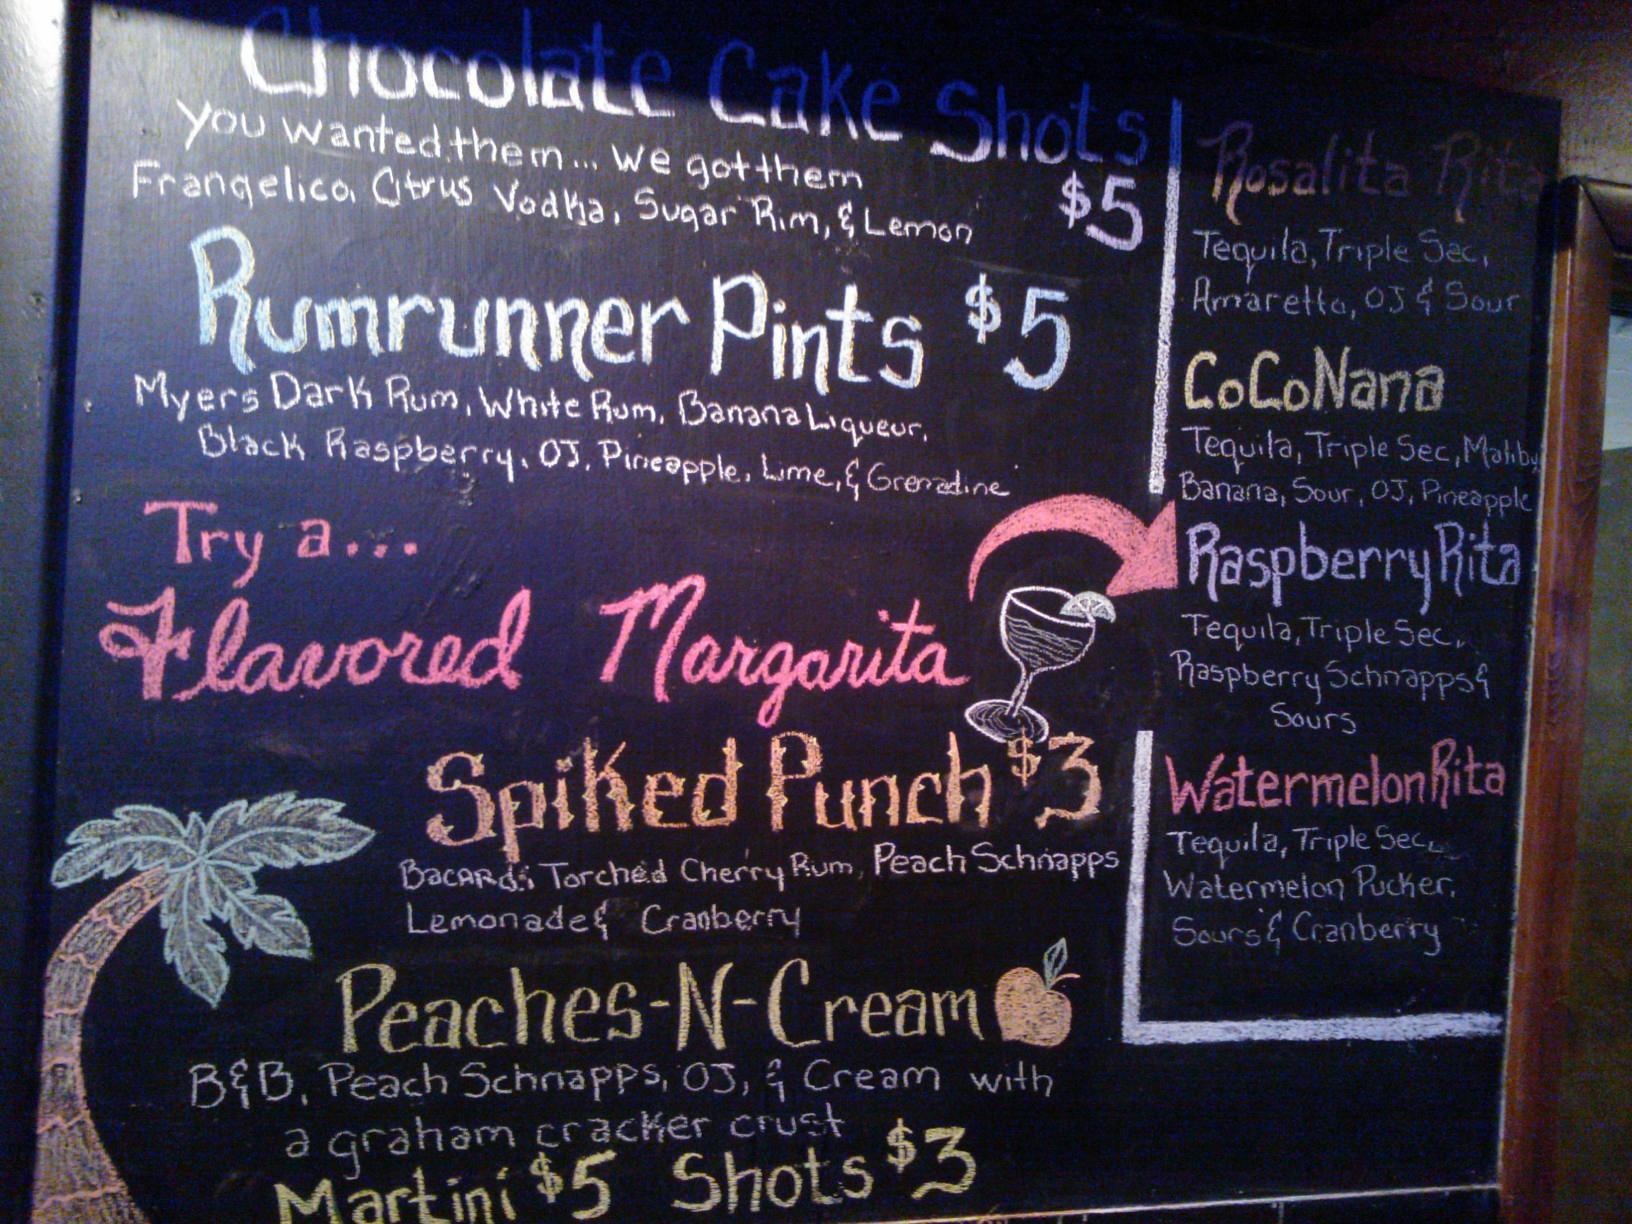 Chocolate Cake Shots
you wanted them... we got them
Frangelico, Citrus Vodka, Sugar Rim, & Lemon
$5
Rumrunner Pints $5
Myers Dark Rum, White Rum, Banana Liqueur,
Black Raspberry, OJ, Pineapple, Lime, & Grenadine
Try a...
Flavored Margarita
Spiked Punch $3
Bacardi Torched Cherry Rum, Peach Schnapps
Lemonade & Cranberry
Peaches-N-Cream
B&B, Peach Schnapps, OJ, & Cream with
a graham cracker crust
Martini $5 Shots $3
Rosalita Rita
Tequila, Triple Sec,
Amaretto, OJ & Sour
CoCoNana
Tequila, Triple Sec, Malibu
Banana, Sour, OJ, Pineapple
Raspberry Rita
Tequila, Triple Sec,
Raspberry Schnapps &
Sours
Watermelon Rita
Tequila, Triple Sec,
Watermelon Pucker,
Sours & Cranberry